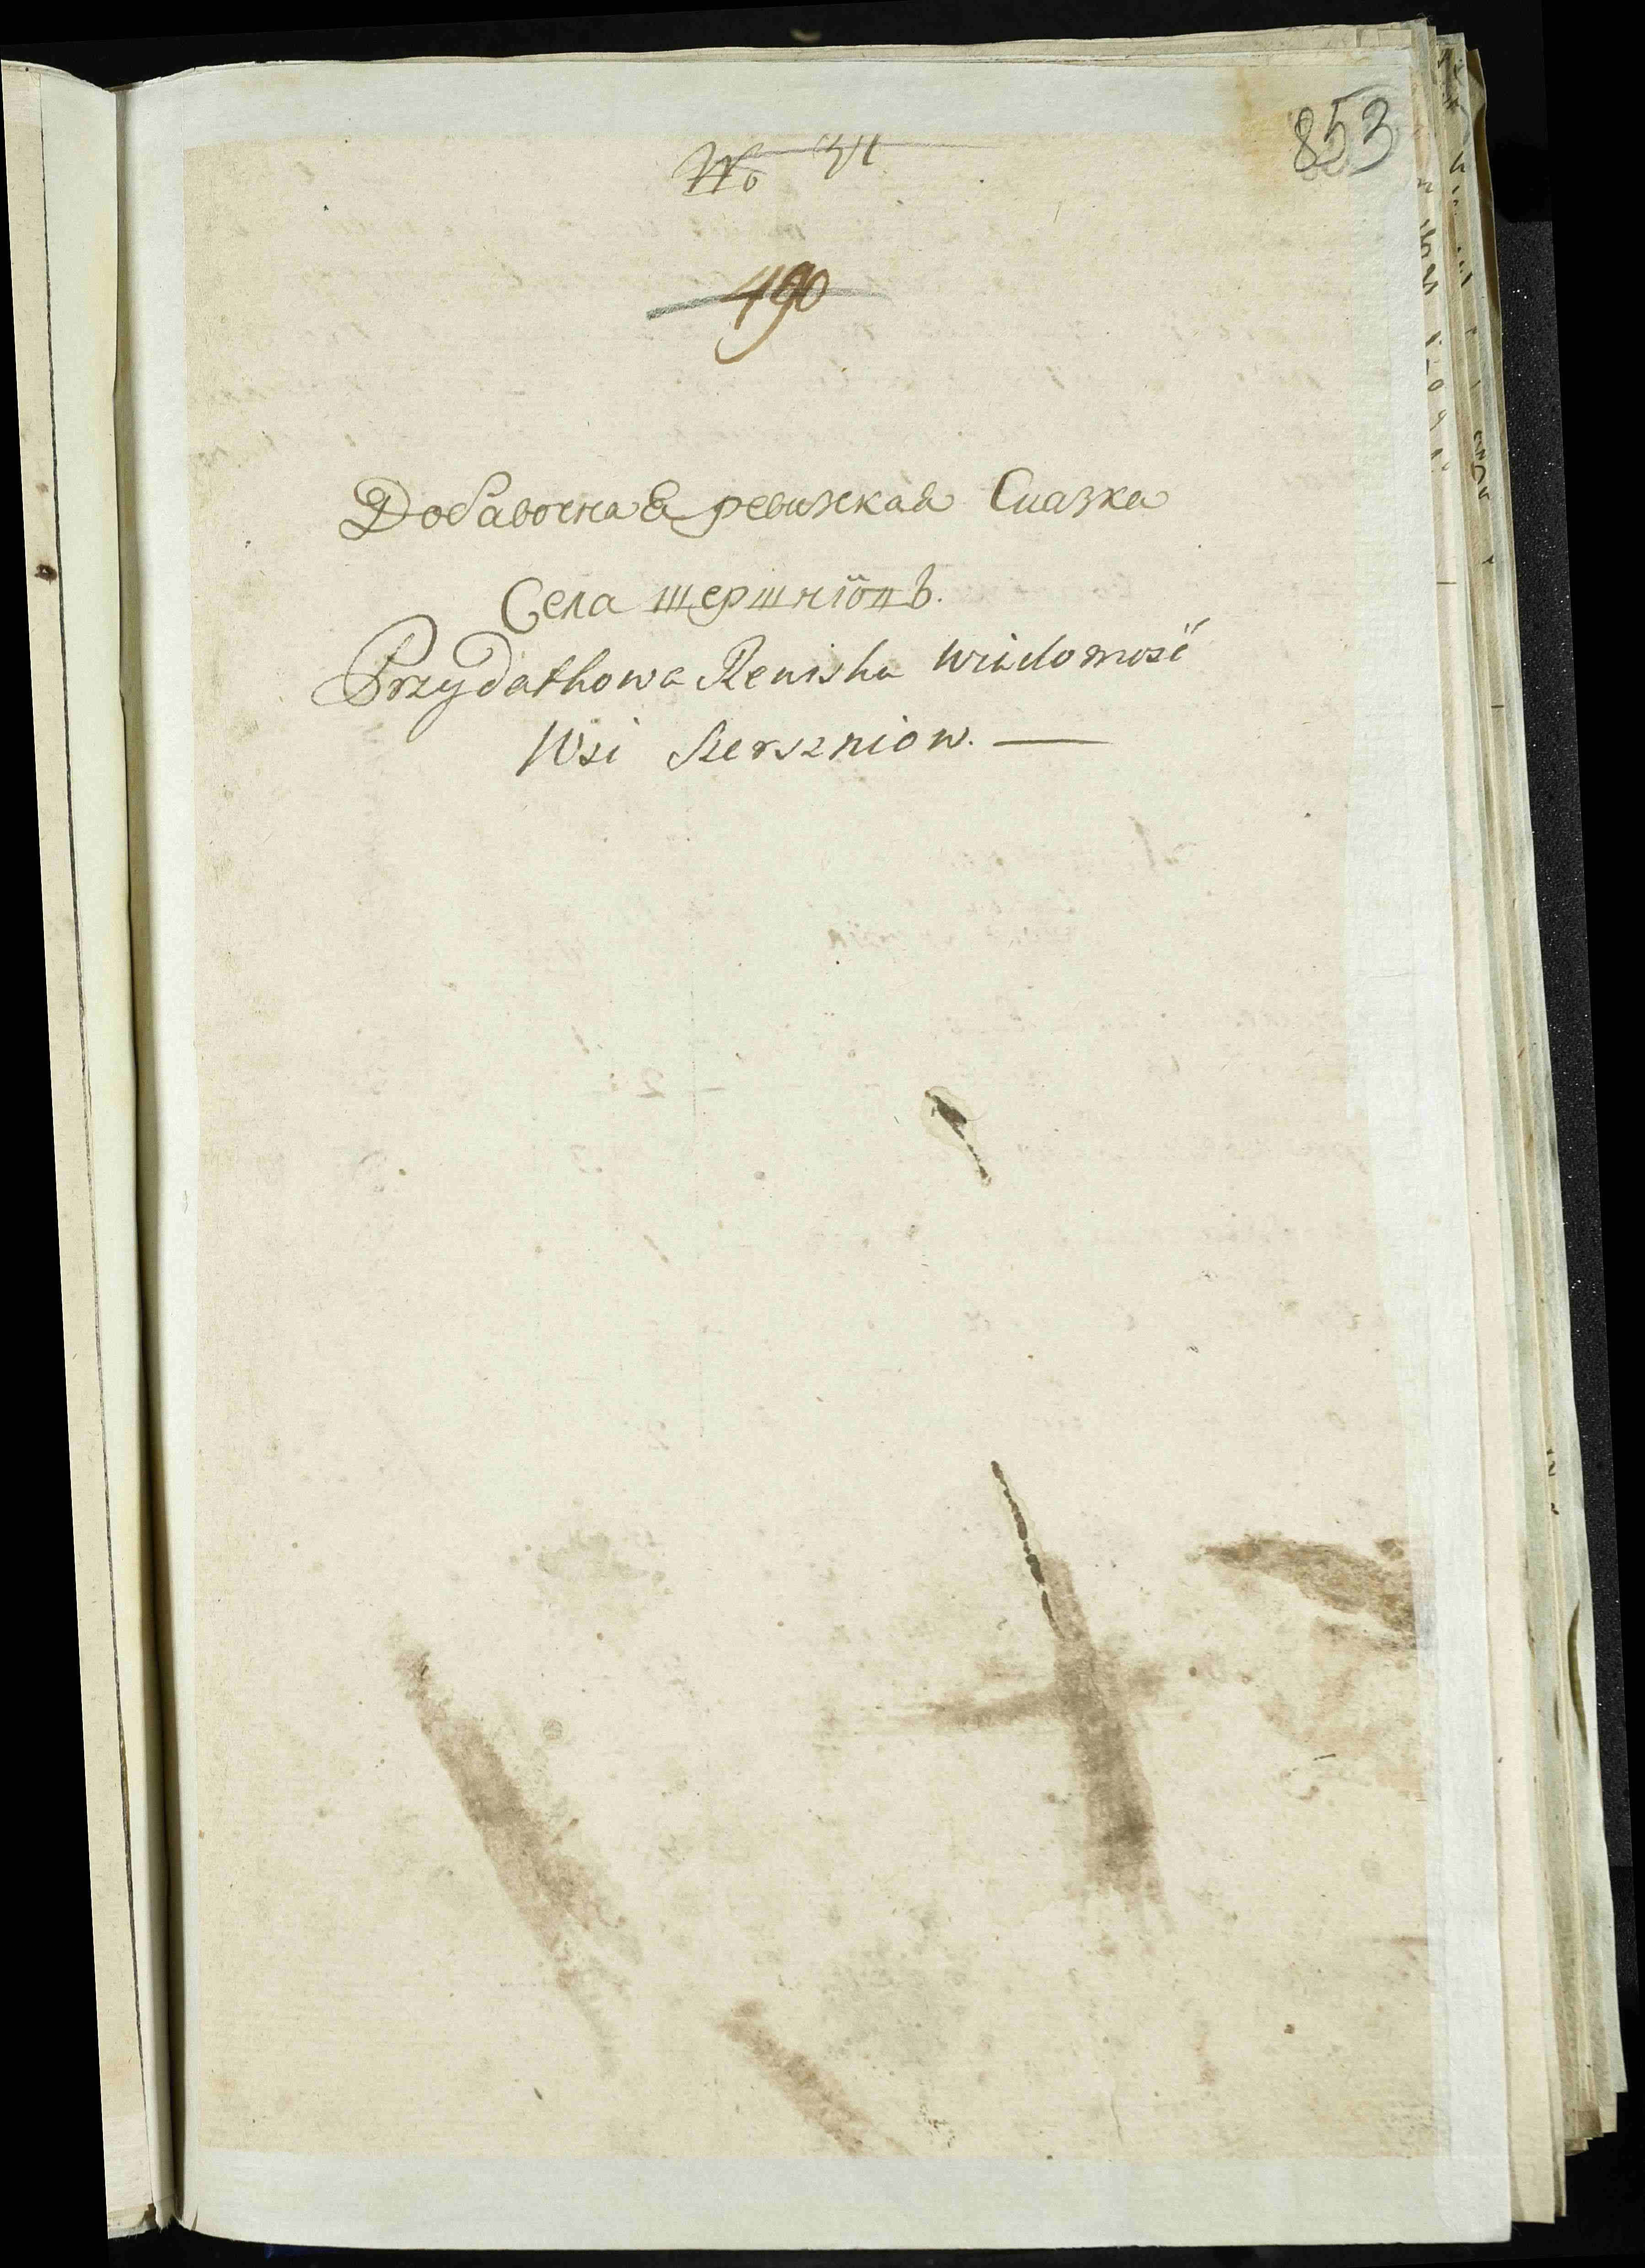 853
No
490
Добавочная ревизкая Сказка
Села шершнïовъ.
Przydatkowa Rewiska Wiadomość
Wsi Szerszniow. —